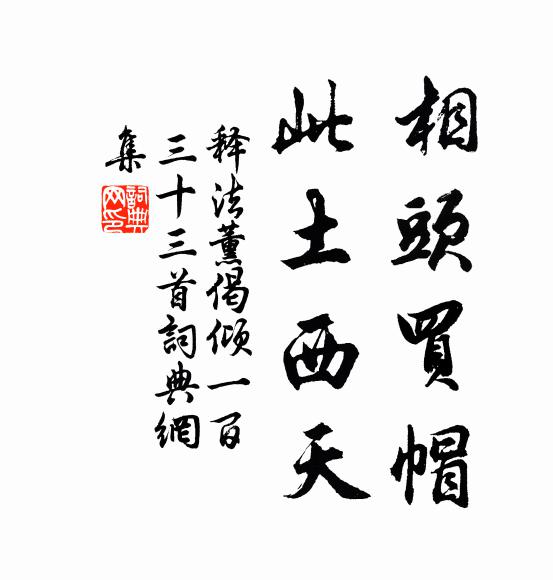 相頭買帽
此土西天
释法薰偈倾一百
三十三首詞典網
集
詞典
网印